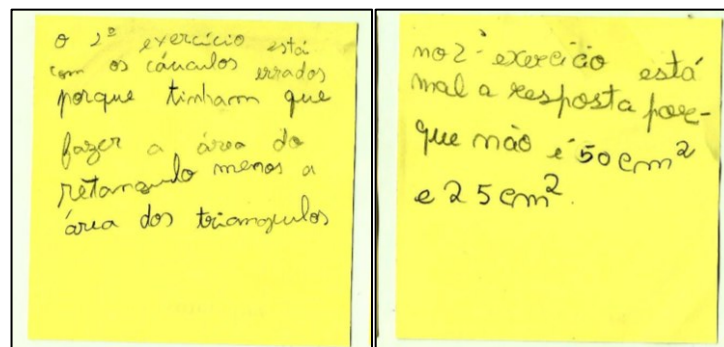 O 2º exercício está
com os cáuculos errados
porque tinham que
fazer a área do
retangulo menos a
área dos triangulos
no 2º exercício está
mal a resposta por-
que não é 50 cm²
e 25 cm².